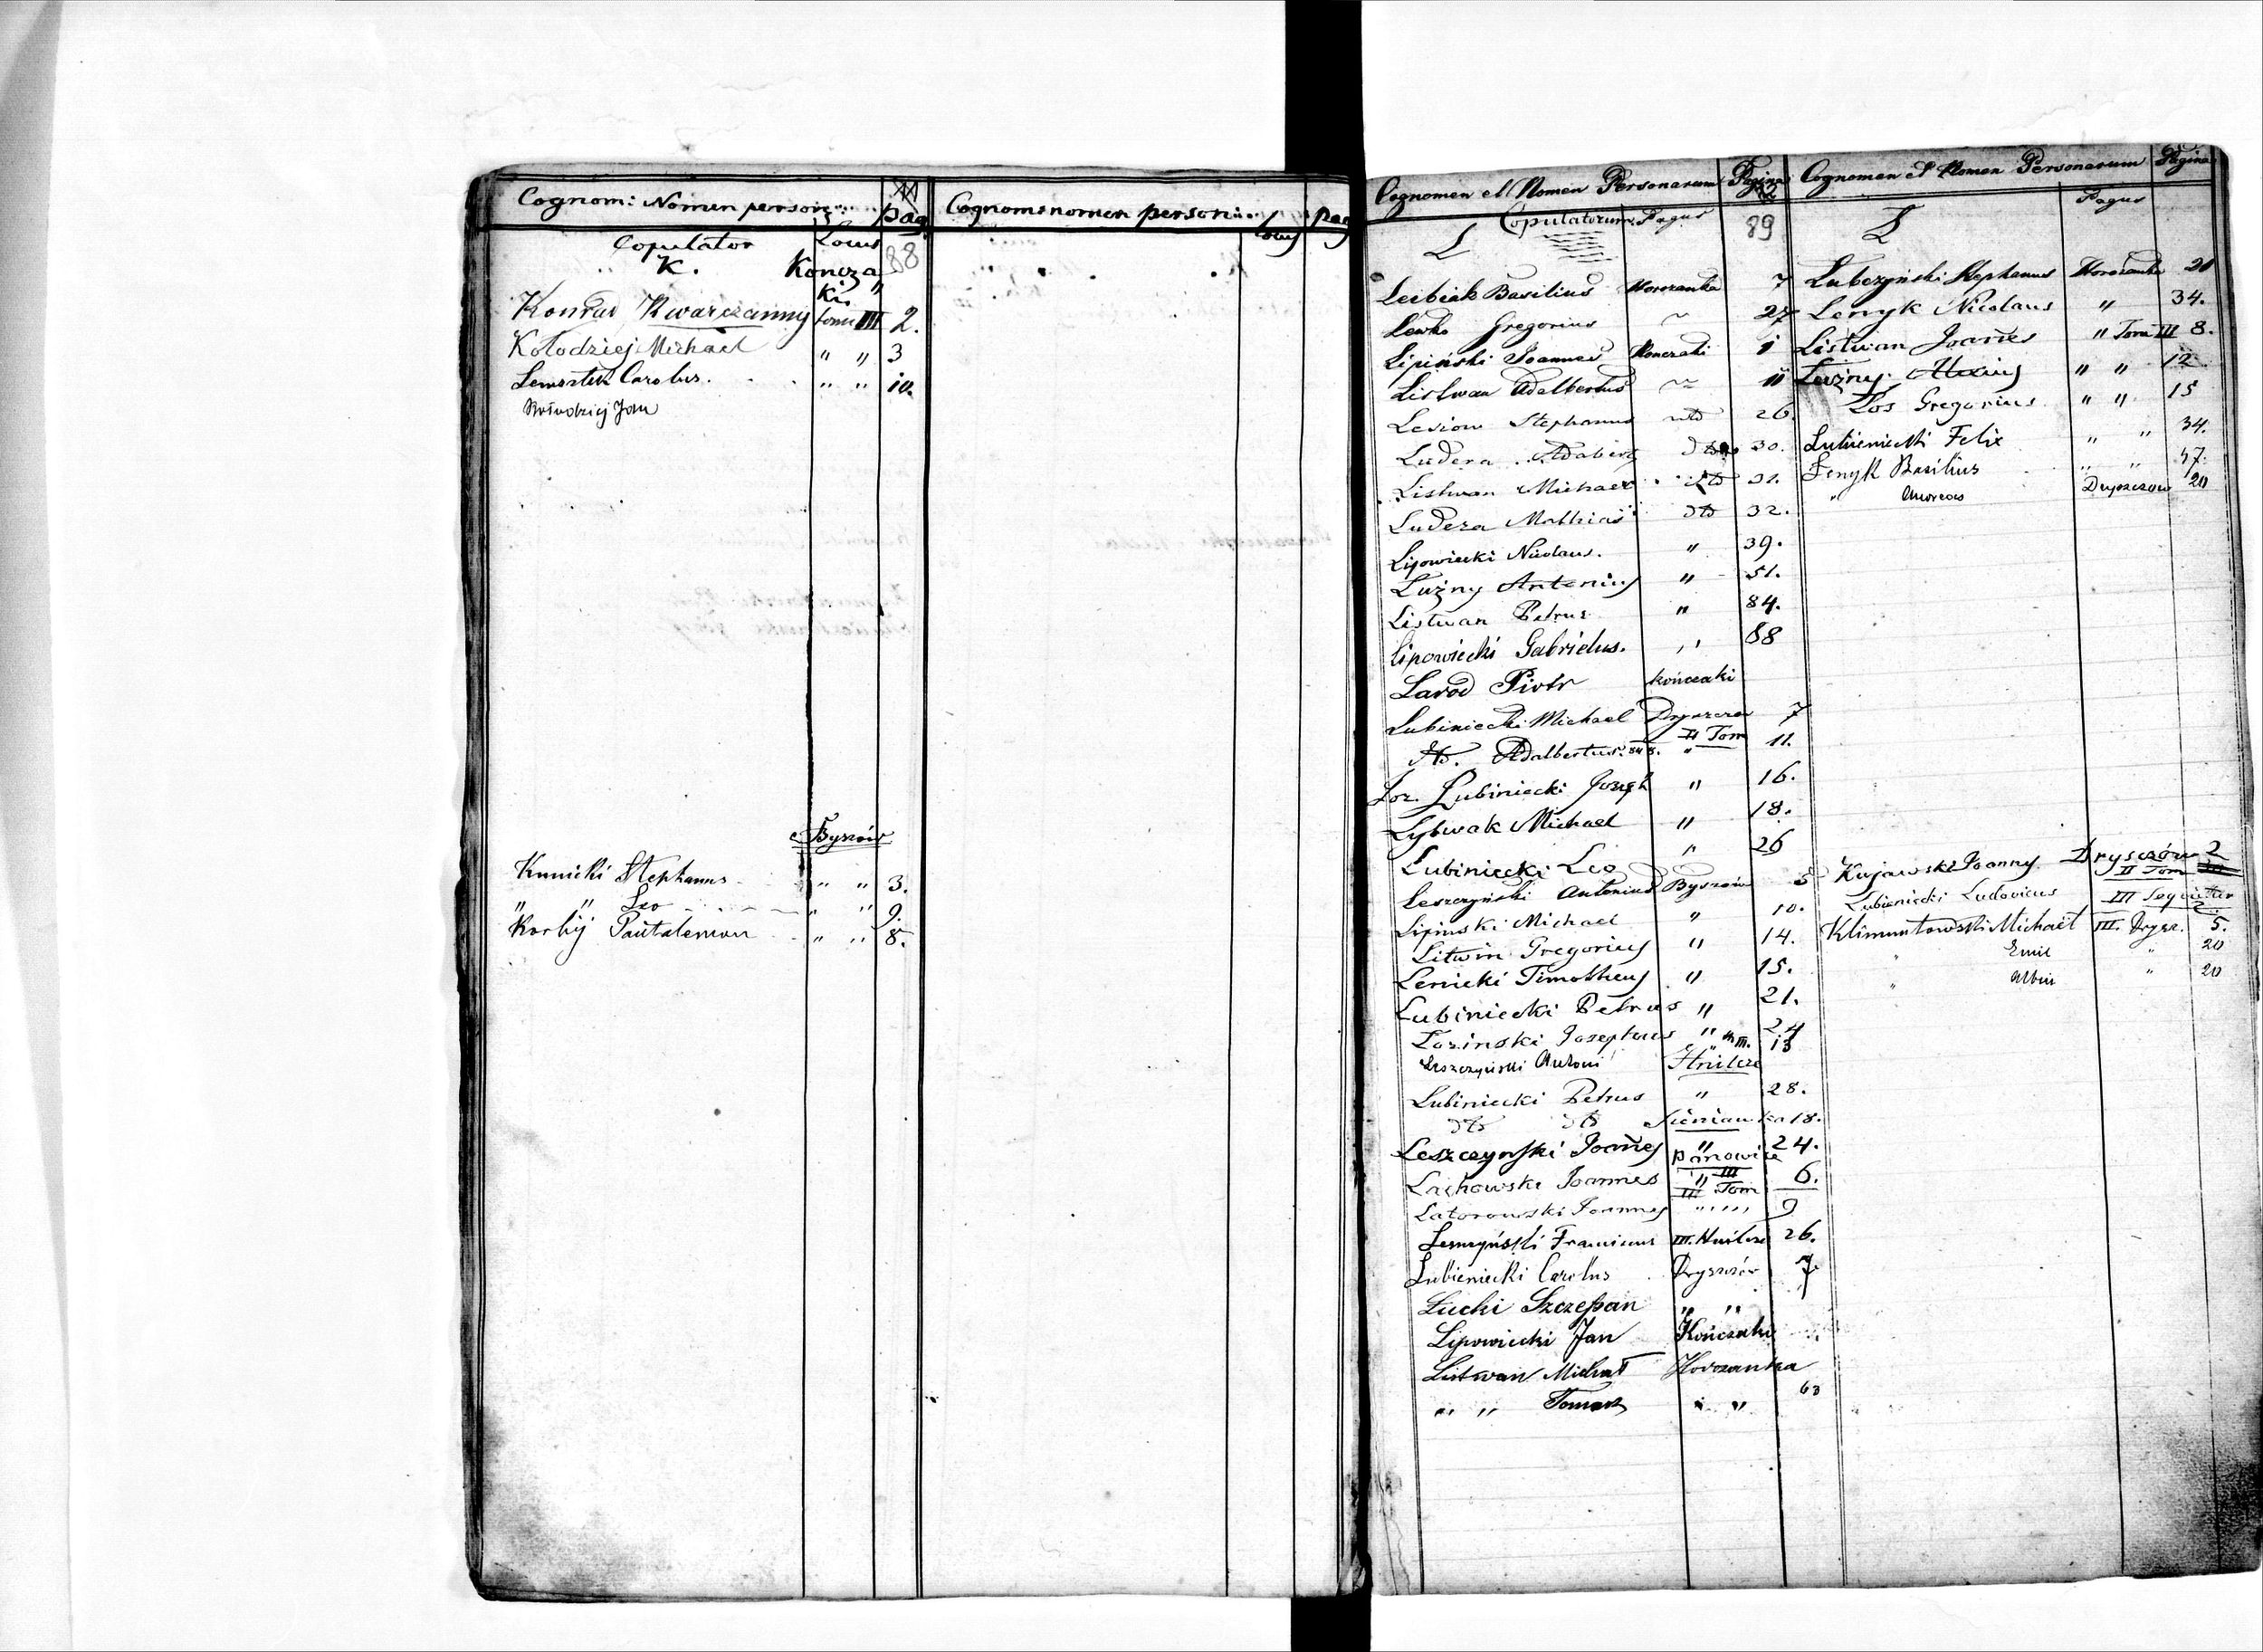 Cognom: Nomen person: pag
Copulator Locus 88
K. Koncza
ki "
Konrad Kwarczanny tom III 2.
Kołodziej Michael " " 3
Lemartek Carolus. " " 10.
Kołodziej Jan
Byszów
Kunicki Stephanus " " 3.
" " Leo " " 9.
Korbij Pantalemon " " 8.
Cognom: nomen person: Locus pag
Cognomen et Nomen Personarum Pagina
Copulatorum Pagus 89
L
Leibiak Basilius Horozanka 7
Lewko Gregorius ~ 27
Lipiński Joannes Konczaki 1
Listwan Adalbertus ~ 11
Lesiow Stephanus dto 26.
Ludera Adalberg dto 30.
Listwan Michael dto 31.
Ludera Mathias dto 32.
Lipowiecki Nicolaus. " 39.
Luzny Antonius " 51.
Listwan Petrus " 84.
Lipowiecki Gabrielus. " 88
Larod Piotr Kończaki
Lubiniecki Michael Dryszczow 7
dto. Adalbertus. 848. II Tom " 11.
Loz. Lubiniecki Joseph " 16.
Lytwak Michael " 18.
Lubiniecki Leo " 26
Leszczyński Antonius Byszów 5
Lipinski Michael " 10.
Litwin Gregorius " 14.
Lenicki Timotheus " 15.
Lubiniecki Petrus " 21.
Łozinski Josephus " 24
Leszczyński Antoni " III. 13
Hnilcze
Lubiniecki Petrus " 28.
dto dto Sieniawka 18.
Leszczynski Joañes " 24.
Panowice
Lachowski Joannes " III 6.
III Tom
Latorowski Joannes " " 9
Leszczyński Franciscus III. Hnilcze 26.
Lubieniecki Carolus Dryszczów 7
Łucki Szczepan " "
Lipowiecki Jan Kończaki
Listwan Michał Horozanka
" " Tomasz " " 63
Cognomen et Nomen Personarum Pagina
Pagus
L
Lubczyński Stephanus Horozanka 21
Lenyk Nicolaus " 34.
Listwan Joañes " Tom III 8.
Łuzny Alexius " " 12.
Łos Gregorius " " 15
Lubieniecki Felix " " 34.
Lenyk Basilius " " 47.
" Andreas Dryszczow 20
Kujawski Joanny Dryszczów 2
II Tom
Lubieniecki Ludovicus III sequitur
Klimuntowski Michael III. Drysz. 5.
" Emil " 20
" Albin " 20